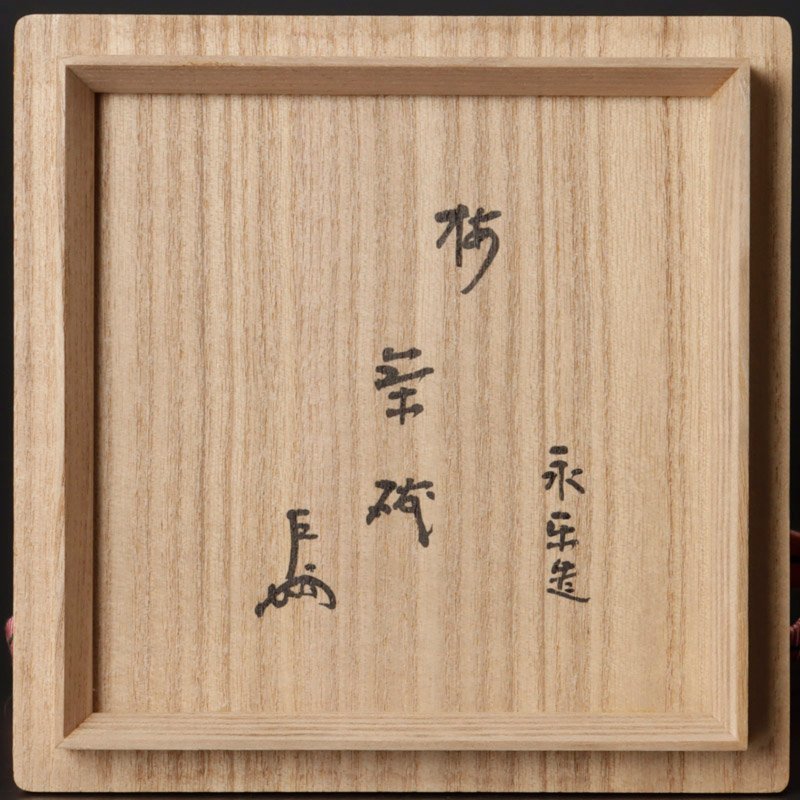 永楽造
梅
茶碗